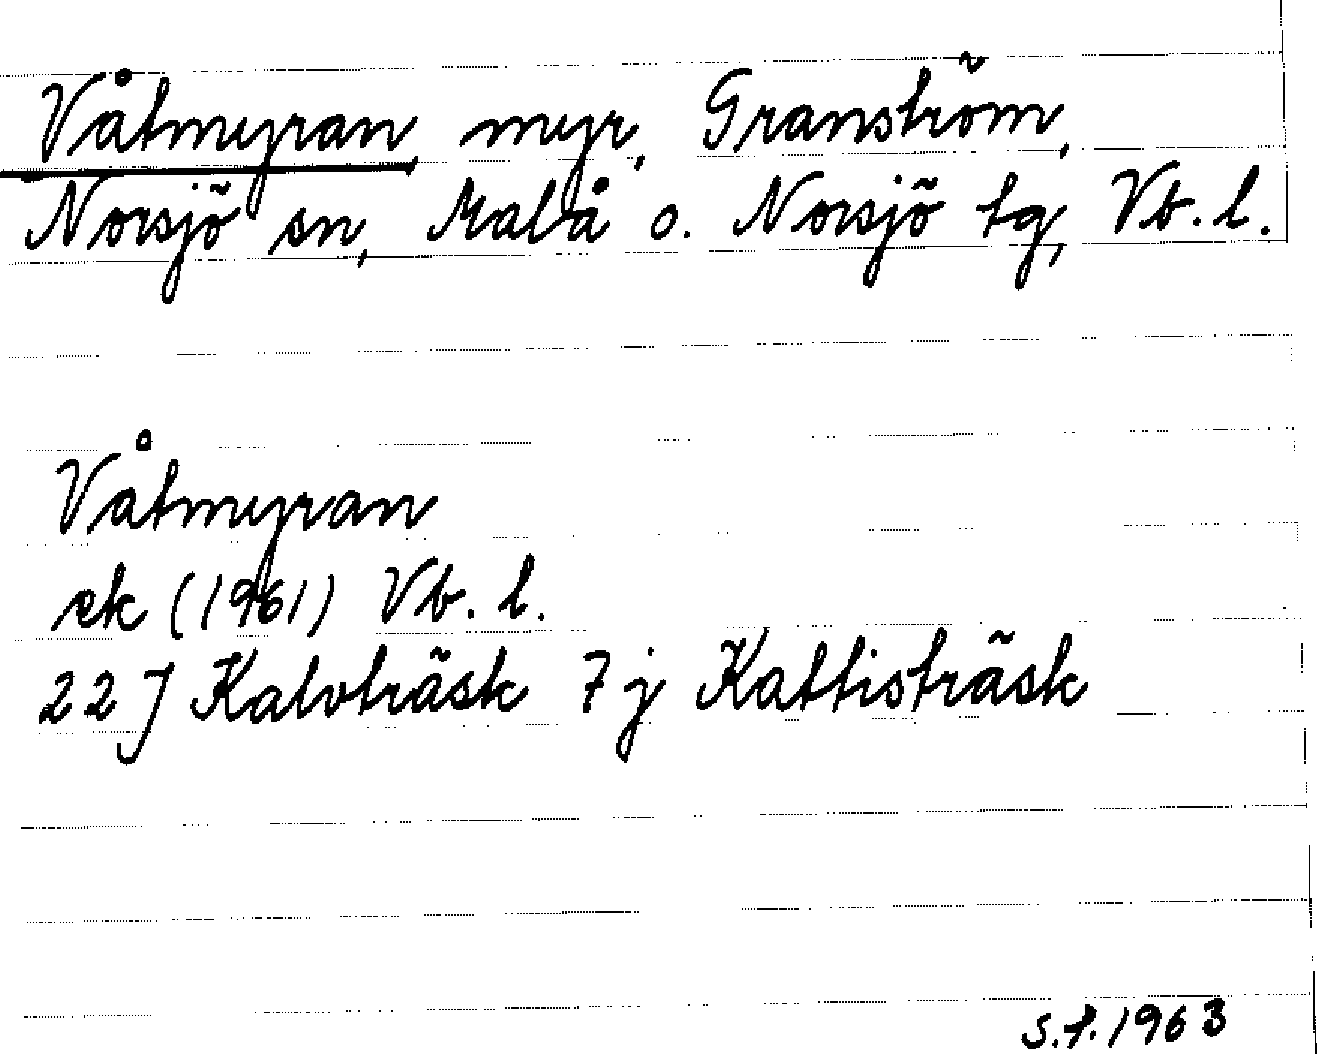 Våtmyran, myr, Granström,
Norsjö sn, Malå o. Norsjö tg, Vb. l.
Våtmyran
ek (1961) Vb. l.
22 J Kalvträsk 7 j Kattisträsk
S.f. 1963